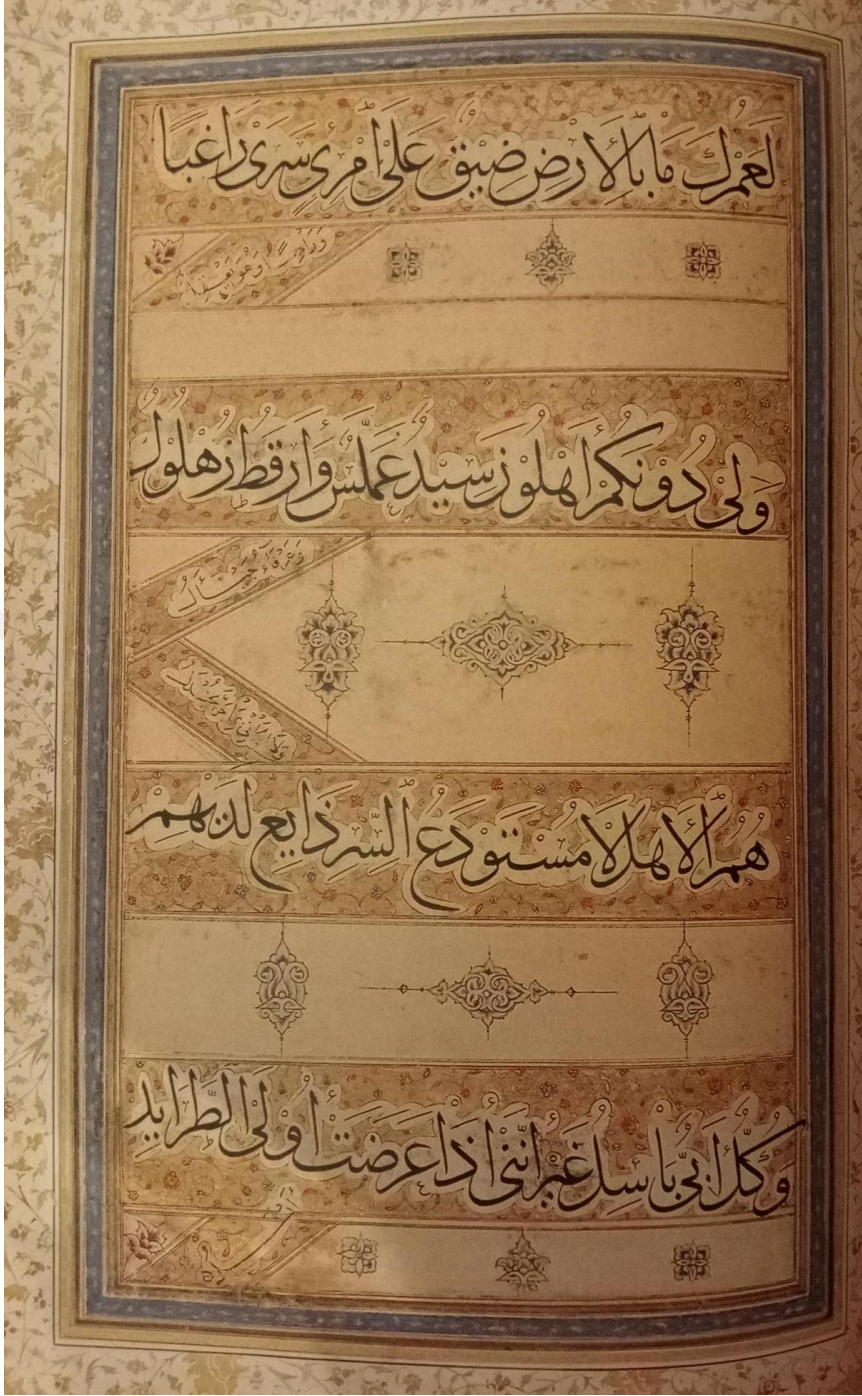 لَعَمْرُكَ مَا بِالْأَرْضِ ضِيقٌ عَلَى امْرِئٍ سَرَى رَاغِبًا
وَرَاهِبًا وَهُوَ يَعْقِلُ
وَلِي دُونَكُمْ أَهْلُونَ سِيدٌ عَمَلَّسٌ وَأَرْقَطُ زُهْلُولٌ
وَعَرْفَاءُ جَيْأَلُ
هُمُ الْأَهْلُ لَا مُسْتَوْدَعُ السِّرِّ ذَايِعٌ لَدَيْهِمْ
وَكُلٌّ أَبِيٌّ بَاسِلٌ غَيْرَ أَنَّنِي إِذَا عَرَضَتْ أُولَى الطَّرَايِدِ